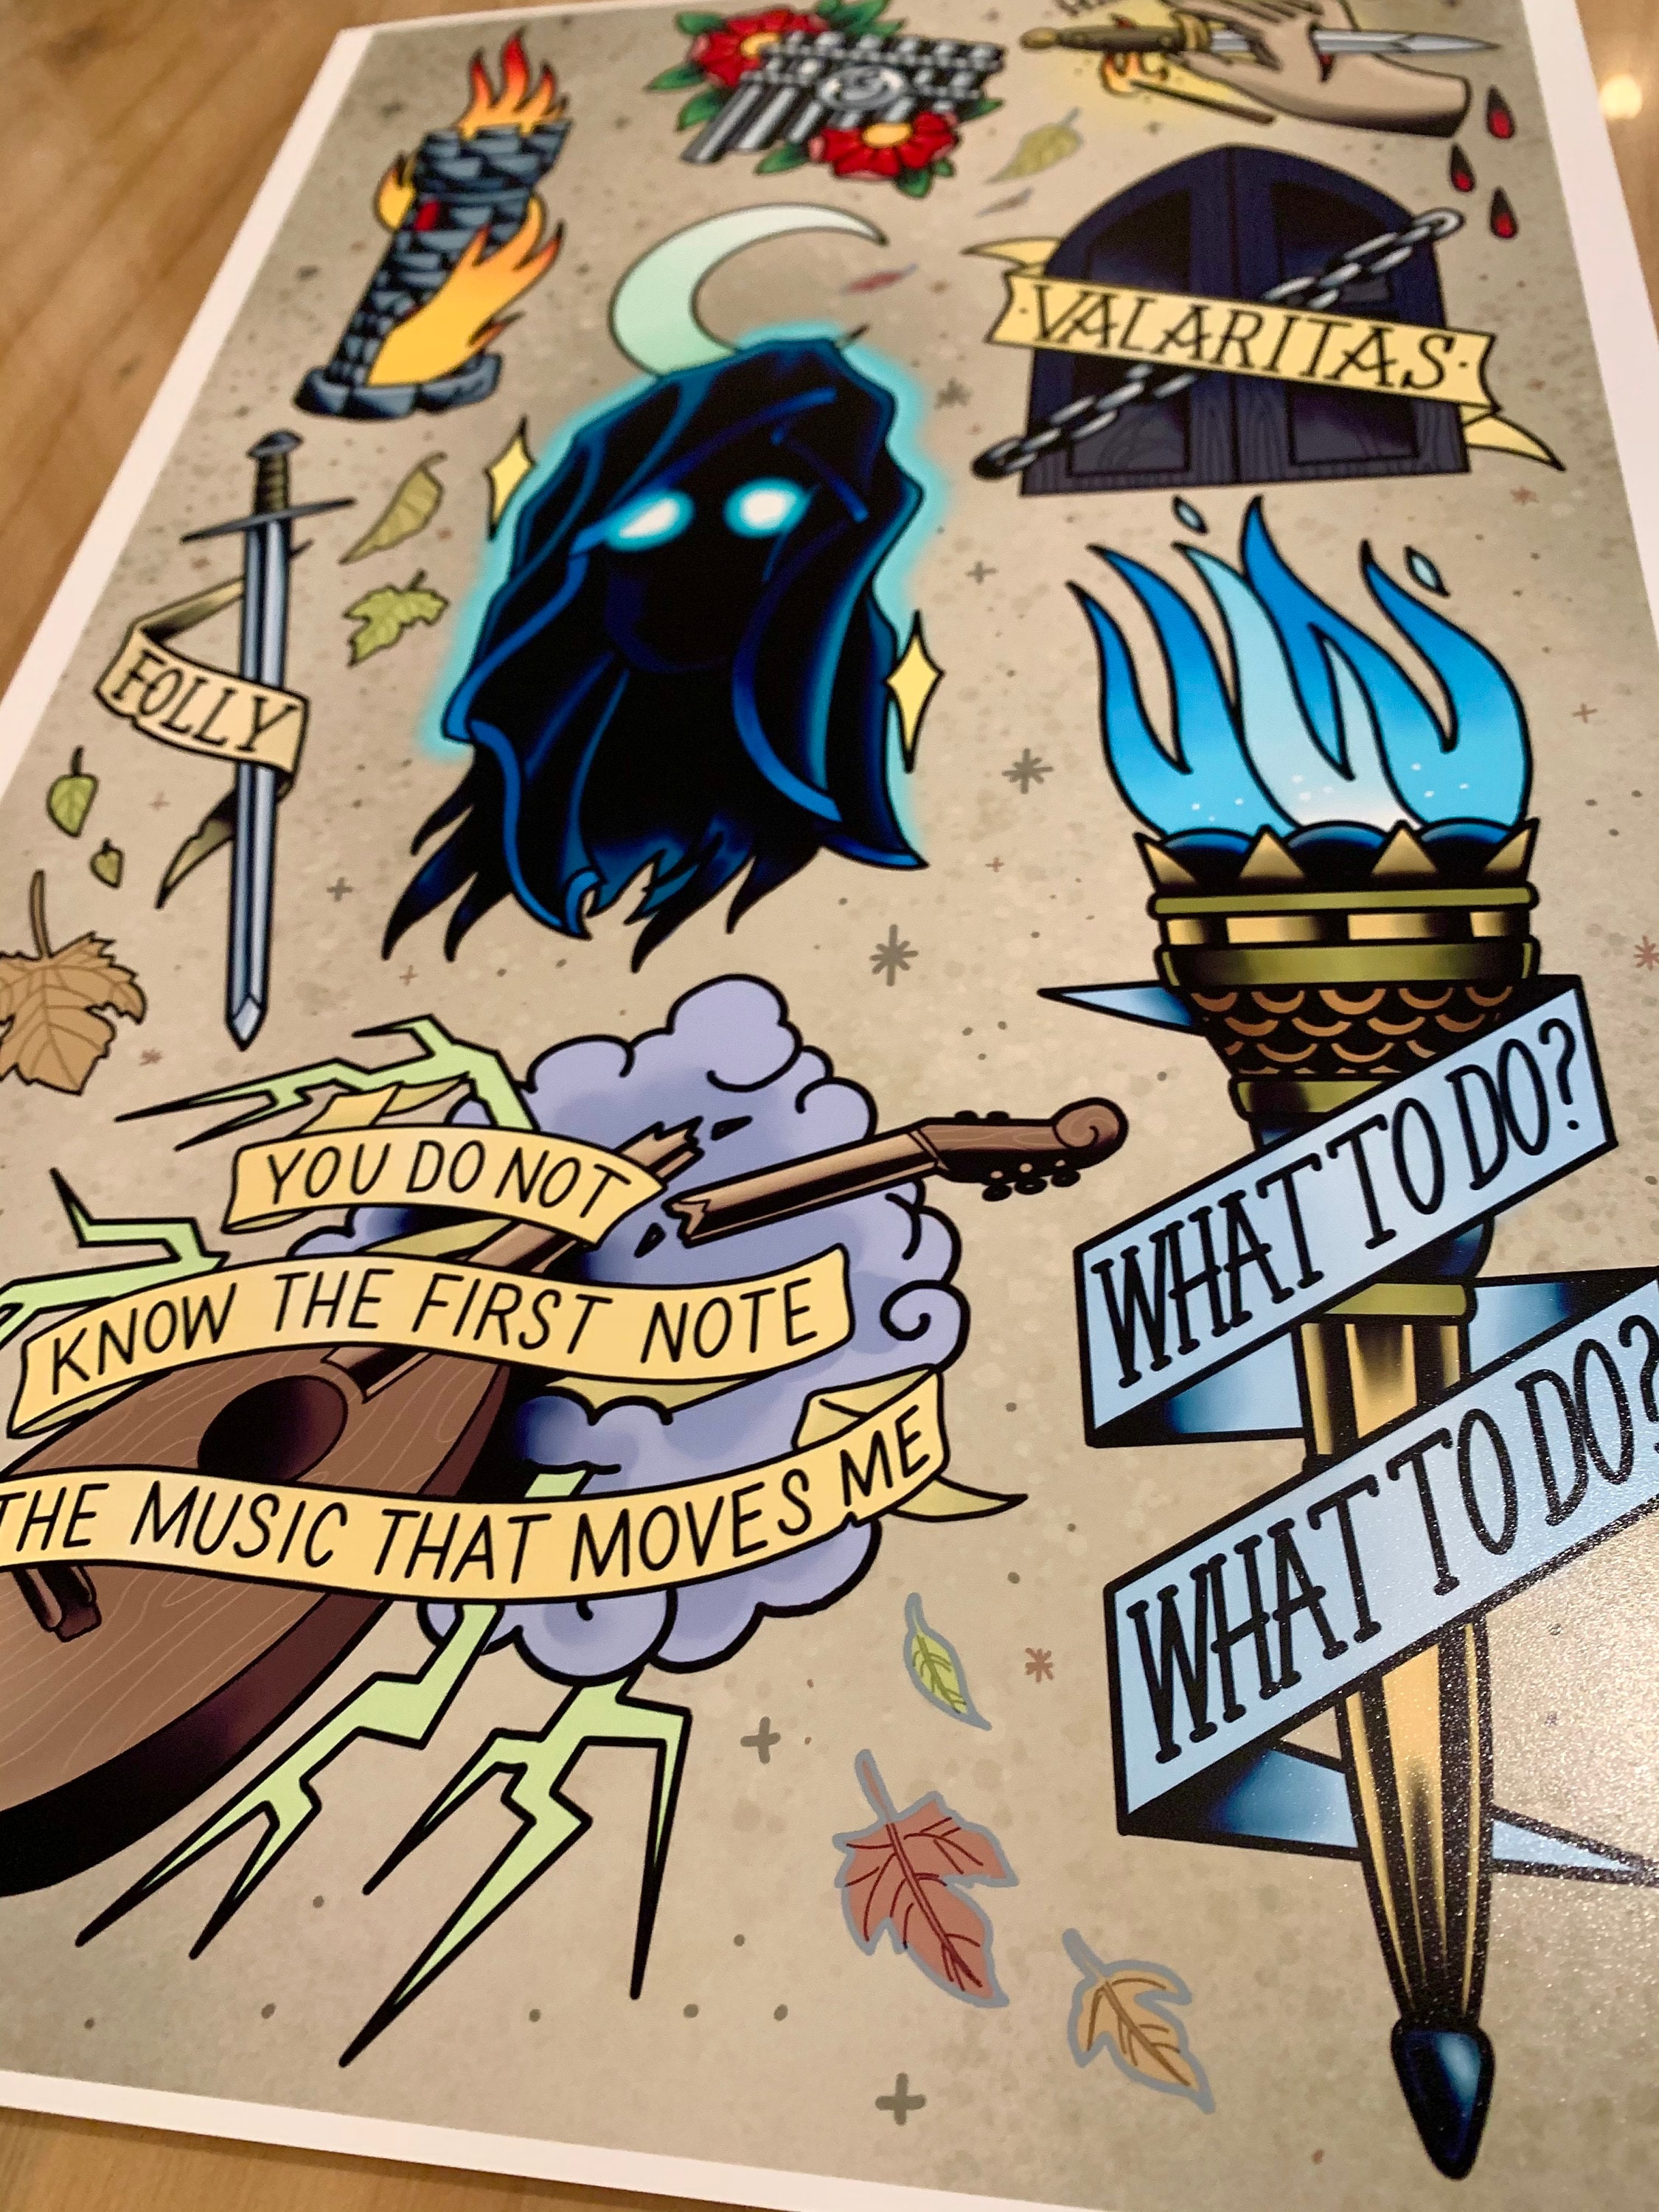 VALARITAS
FOLLY
YOU DO NOT
KNOW THE FIRST NOTE
THE MUSIC THAT MOVES ME
WHAT TO DO?
WHAT TO DO?